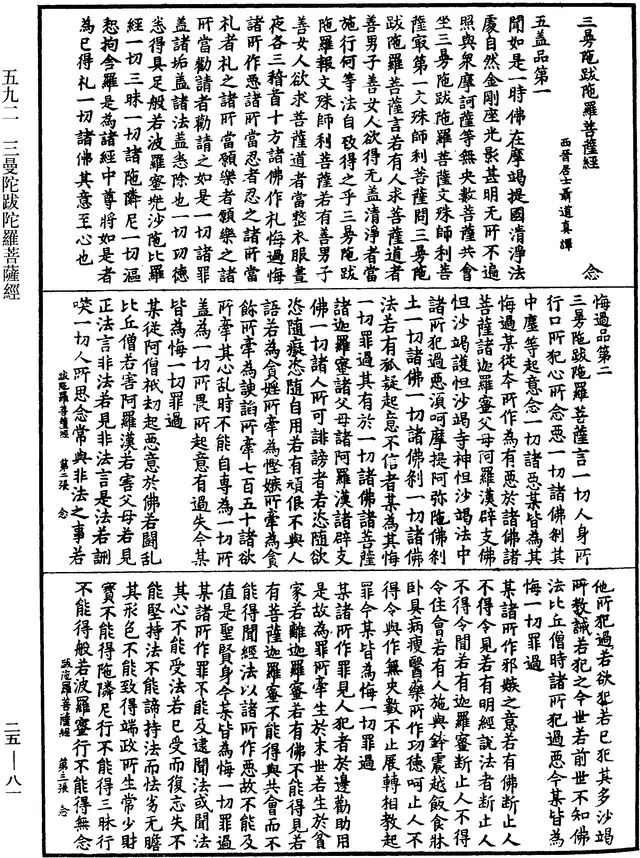 三曼陁跋陁羅菩薩經　念
西晉居士聶道真譯
五盖品第一
聞如是一時佛在摩竭提國清淨法
處自然金剛座光影甚明无所不遍
照與衆摩訶薩等無央數菩薩共會
坐三曼陁跋陁羅菩薩文殊師利菩
薩㝡第一文殊師利菩薩問三曼陁
跋陁羅菩薩言若有人求菩薩道者
善男子善女人欲得无盖清淨者當
施行何等法自致得之乎三曼陁跋
陁羅報文殊師利菩薩若有善男子
善女人欲求菩薩道者當整衣服晝
夜各三稽首十方諸佛作礼悔過悔
諸所作惡諸所當忍者忍之諸所當
礼者礼之諸所當願樂者願樂之諸
所當勸請者勸請之如是一切諸罪
盖諸垢盖諸法盖悉除也一切功德
悉得具足般若波羅蜜兜沙陁比羅
經一切三昧一切諸陁隣尼一切漚
惒拘舍羅是為諸經中尊將如是者
為已得礼一切諸佛其意至心也
悔過品第二
三曼陁跋陁羅菩薩言一切人身所
行口所犯心所念惡一切諸佛剎其
中塵等起意念一切諸惡某皆為其
悔過某從本所作為有惡於諸佛諸
菩薩諸迦羅蜜父母阿羅漢辟支佛
怛沙竭護怛沙竭寺神怛沙竭法中
諸所犯過惡湏呵摩提阿弥陁佛剎
土一切諸佛一切諸佛剎一切諸佛
法若有狐疑起意不信者某為其悔
一切罪過其有於一切諸佛諸菩薩
諸迦羅蜜諸父母諸阿羅漢諸辟支
佛一切諸人所可誹謗者若恣隨欲
恣隨癡恣隨自用若有頑佷不與人
語若為貪婬所牽為慳嫉所牽為貪
餘所牽為諛諂所牽七百五十諸欲
所牽其心乱時不能自專為一切所
盖為一切所畏所起意有過失今某
皆為悔一切罪過
某從阿僧祇劫起惡意於佛若鬪乱
比丘僧若害阿羅漢若害父母若見
正法言非法若見非法言是法若
一切人所思念常與非法之事若
跋陁羅菩薩經　第二張　念
他所犯過若欲犯若已犯其多沙竭
所教誡若犯之今世若前世不知佛
法比丘僧時諸所犯過惡今某皆為
悔一切罪過
某諸所作邪嫉之意若有佛断止人
不得令見若有明經說法者断止人
不得令聞若有迦羅蜜断止人不得
令住會若有人施與鉢震越飯食牀
卧具病瘦醫藥所作功德呵止人不
得令與作無央數不止展轉相教起
罪今某皆為悔一切罪過
某諸所作罪見人犯者於邊勸助用
是故為罪所牽生於末世若生於貧
家若離迦羅蜜若有佛不能得見若
有菩薩迦羅蜜不能得與共會而不
能得聞經法以諸所作惡故不能及
值是聖賢身今某皆為悔一切罪過
某諸所作罪不能及逮聞法或聞法
其心不能受法若已受而復忘失不
能堅持法不能諦持法而怯劣无膽
其形色不能致得端政所生常少財
寳不能得陁隣尼行不能得三昧行
不能得般若波羅蜜行不能得無念
跋陁羅菩薩經　第三張　念
五九二　三曼陀跋陀羅菩薩經
二五—八一